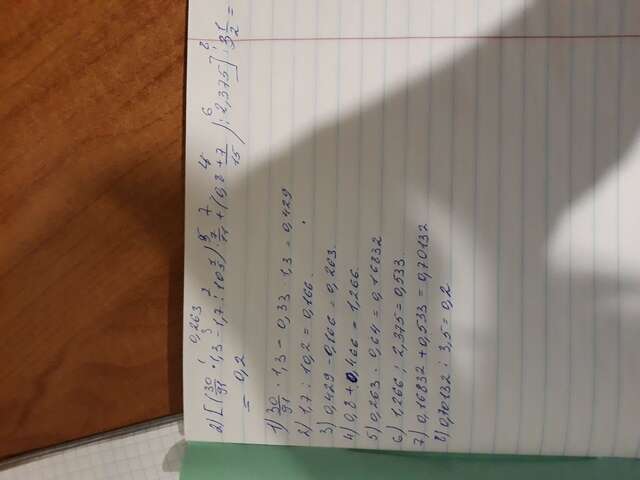 0,263
1 3 2 5 7 4 6 8
2) [(30/91 · 1,3 - 1,7 : 10 1/5) : 7/11 + (0,8 + 7/15) : 2,375] : 3 1/2 =
= 0,2
1) 30/91 · 1,3 = 0,33 · 1,3 = 0,429
2) 1,7 : 10,2 = 0,166.
3) 0,429 - 0,166 = 0,263.
4) 0,8 + 0,466 = 1,266.
5) 0,263 · 0,64 = 0,16832
6) 1,266 : 2,375 = 0,533.
7) 0,16832 + 0,533 = 0,70132
8) 0,70132 : 3,5 = 0,2